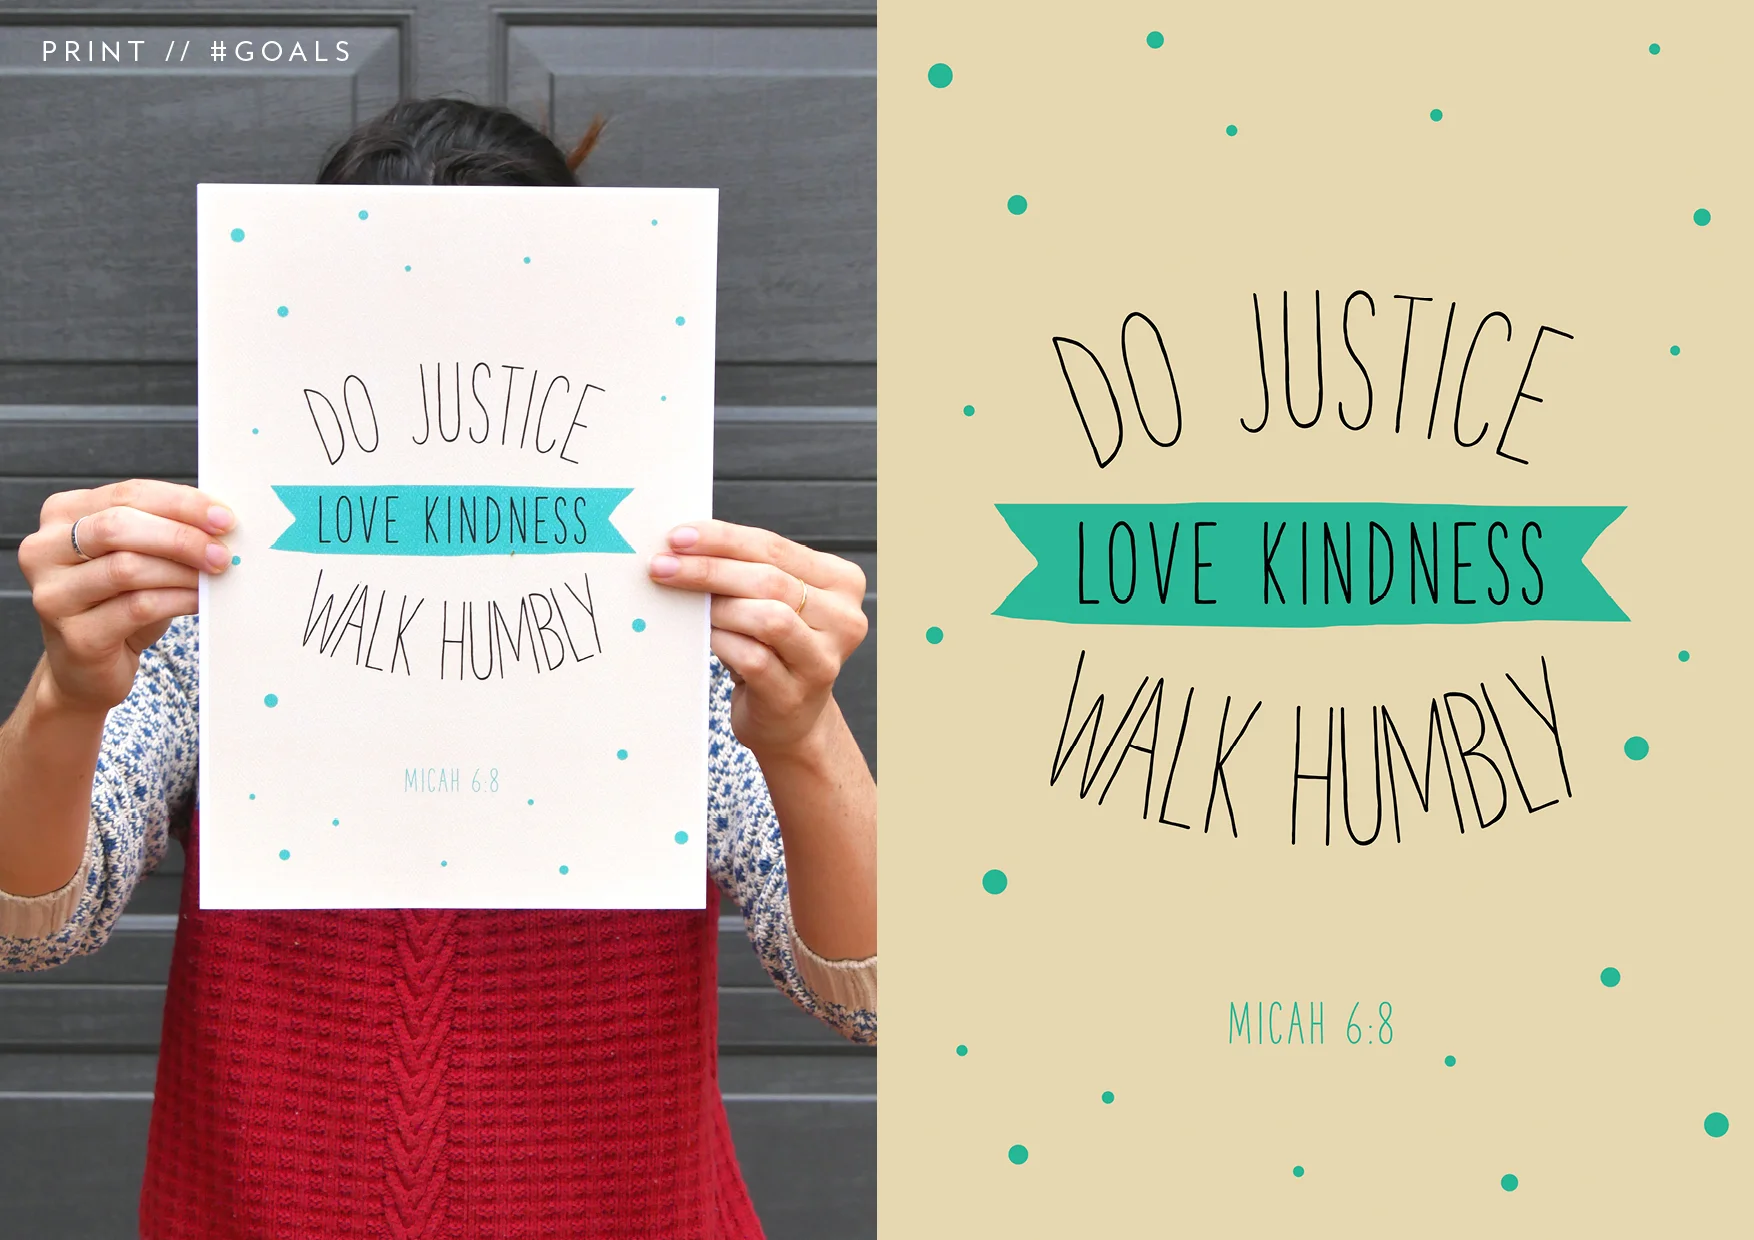 PRINT // #GOALS
DO JUSTICE
LOVE KINDNESS
WALK HUMBLY
MICAH 6:8
DO JUSTICE
LOVE KINDNESS
WALK HUMBLY
MICAH 6:8